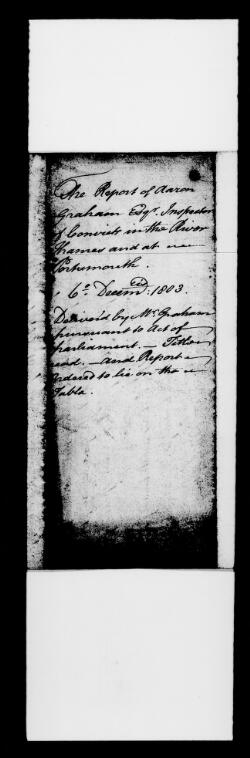 The Report of Aaron
Graham Esqr. Inspector
of Convicts in the River
Thames and at
Portsmouth.
6th Decem 1803.
Deliver'd by Mr. Graham
pursuant to Act of
parliament. — Title
read. — and Report
ordered to lie on the
Table.